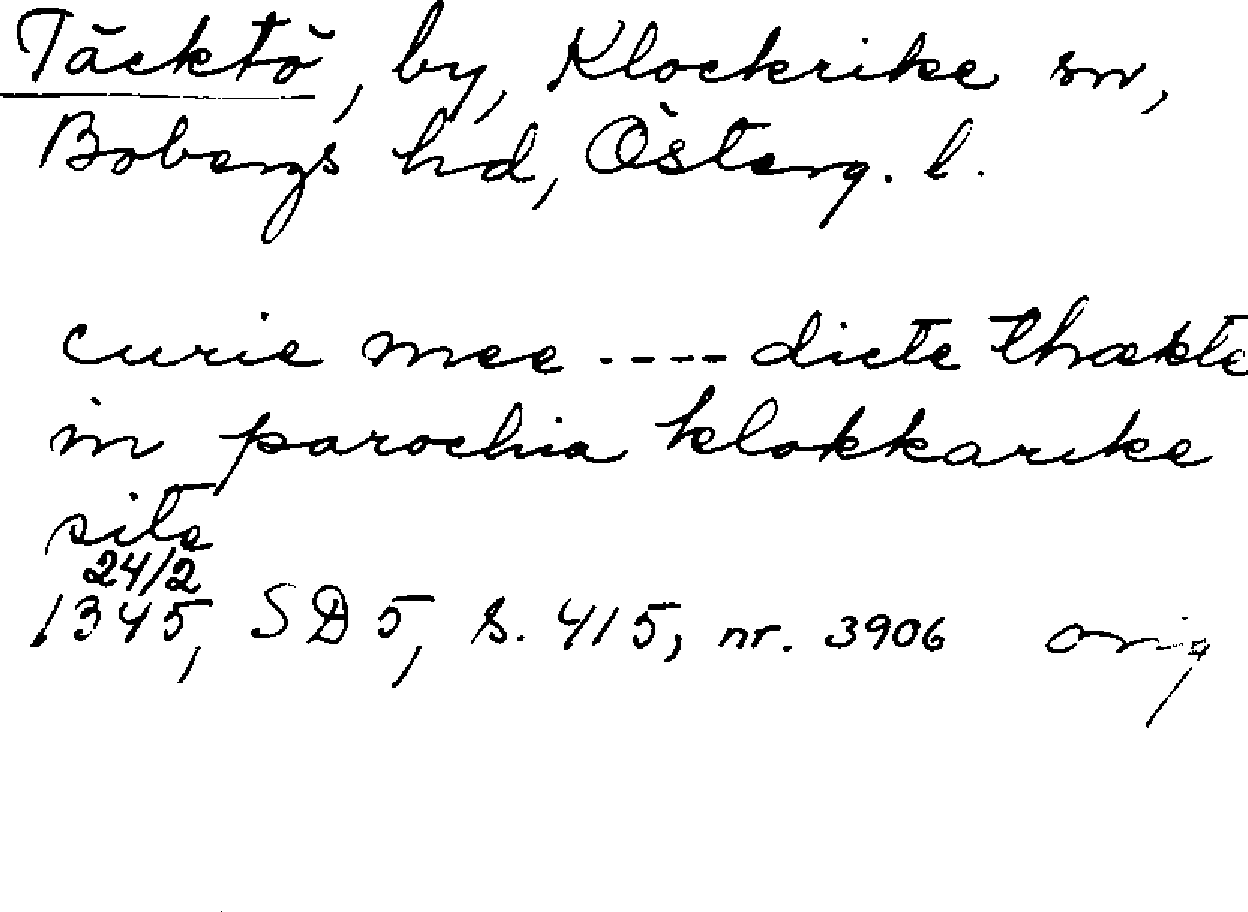 Täcktö, by, Klockrike sn,
Bobergs hd, Österg. l.
curie mee ---- dicte thækte
in parochia klokkarike
site
24/2
1345, SD 5, s. 415, nr. 3906 orig